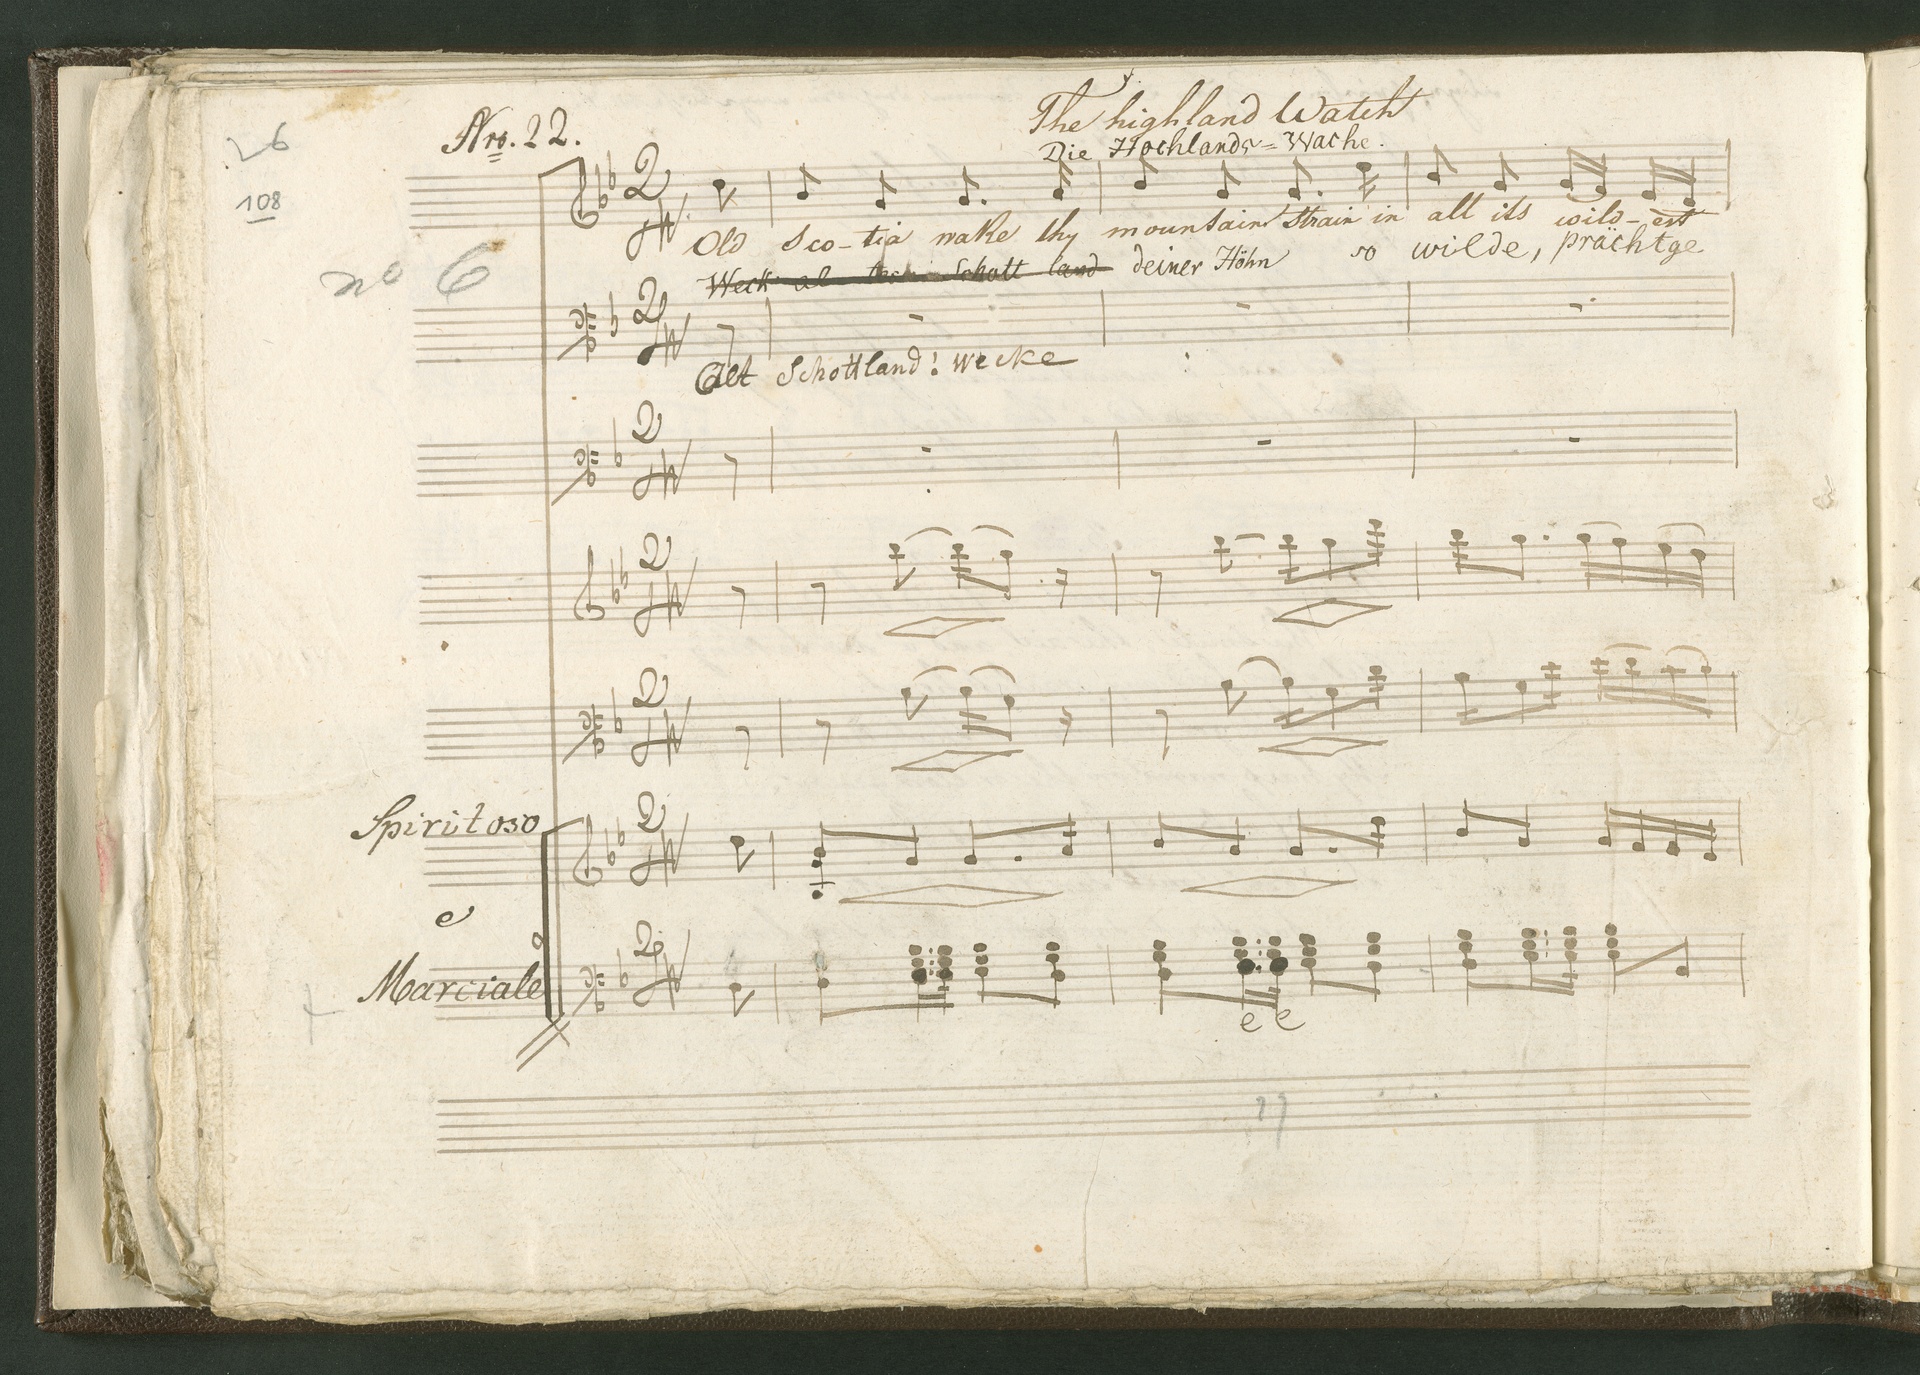 The highland Watch
Nro. 22.
Die Hochlands=Wache.
26
108
Old Sco-tia wake thy mountain strain in all its wild-est
Weck al ten Schott land deiner Höhn so wilde, prächtge
no 6
Alt Schottland! wecke
Spiritoso
e
Marciale
e e